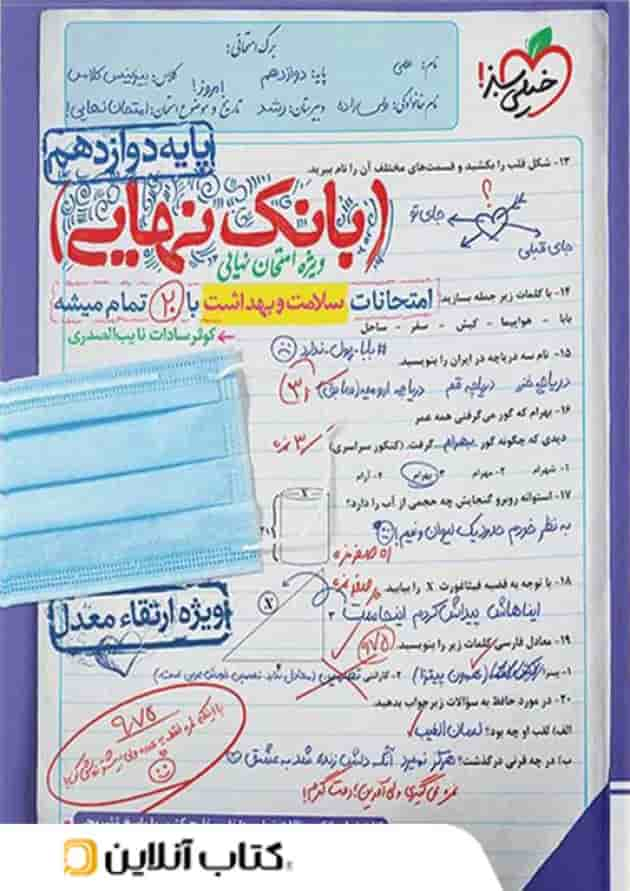 برگ امتحانی:
نام: علی
پایه: دوازدهم
کلاس: بیزینس کلاس
نام خانوادگی: ولی‌زاده
دبیرستان: رشد
تاریخ و موضوع امتحان: امروز! امتحان نهایی!
خیلی سبز!
پایه دوازدهم
۱۳- شکل قلب را بکشید و قسمت‌های مختلف آن را نام ببرید.
؟
جای تو
جای قبلی
(بانک نهایی)
ویژه امتحان نهایی
امتحانات سلامت و بهداشت با ۲۰ تمام میشه
کوثر سادات نایب‌الصدری
۱۴- با کلمات زیر جمله بسازید.
بابا - هواپیما - کیش - سفر - ساحل
# بابا_پول_ندارد
۱۵- نام سه دریاچه در ایران را بنویسید.
دریاچه خزر دریاچه قم دریاچه ارومیه (سابق)
۱۶- بهرام که گور می‌گرفتی همه عمر
دیدی که چگونه گور بهرام گرفت. (کنکور سراسری)
۱- شهرام ۲- مهرام ۳- بهرام ۴- آرام
۱۷- استوانه روبرو گنجایش چه حجمی از آب را دارد؟
به نظر خودم حدود یک لیوان و نیم!
۱۸- با توجه به قضیه فیثاغورث X را بیابید.
ایناهاش پیداش کردم اینجاست
X
ویژه ارتقاء معدل
۱۹- معادل فارسی کلمات زیر را بنویسید.
۱- پیتزا
۲- گارانتی
۲۰- در مورد حافظ به سؤالات زیر جواب بدهید.
الف) لقب او چه بود؟ لسان الغیب
ب) در چه قرنی درگذشت؟ هرگز نمیرد آنکه دلش زنده شد به عشق
نمره نمی‌گیری ولی آفرین! دمت گرم!
۹/۷۵
کتاب آنلاین